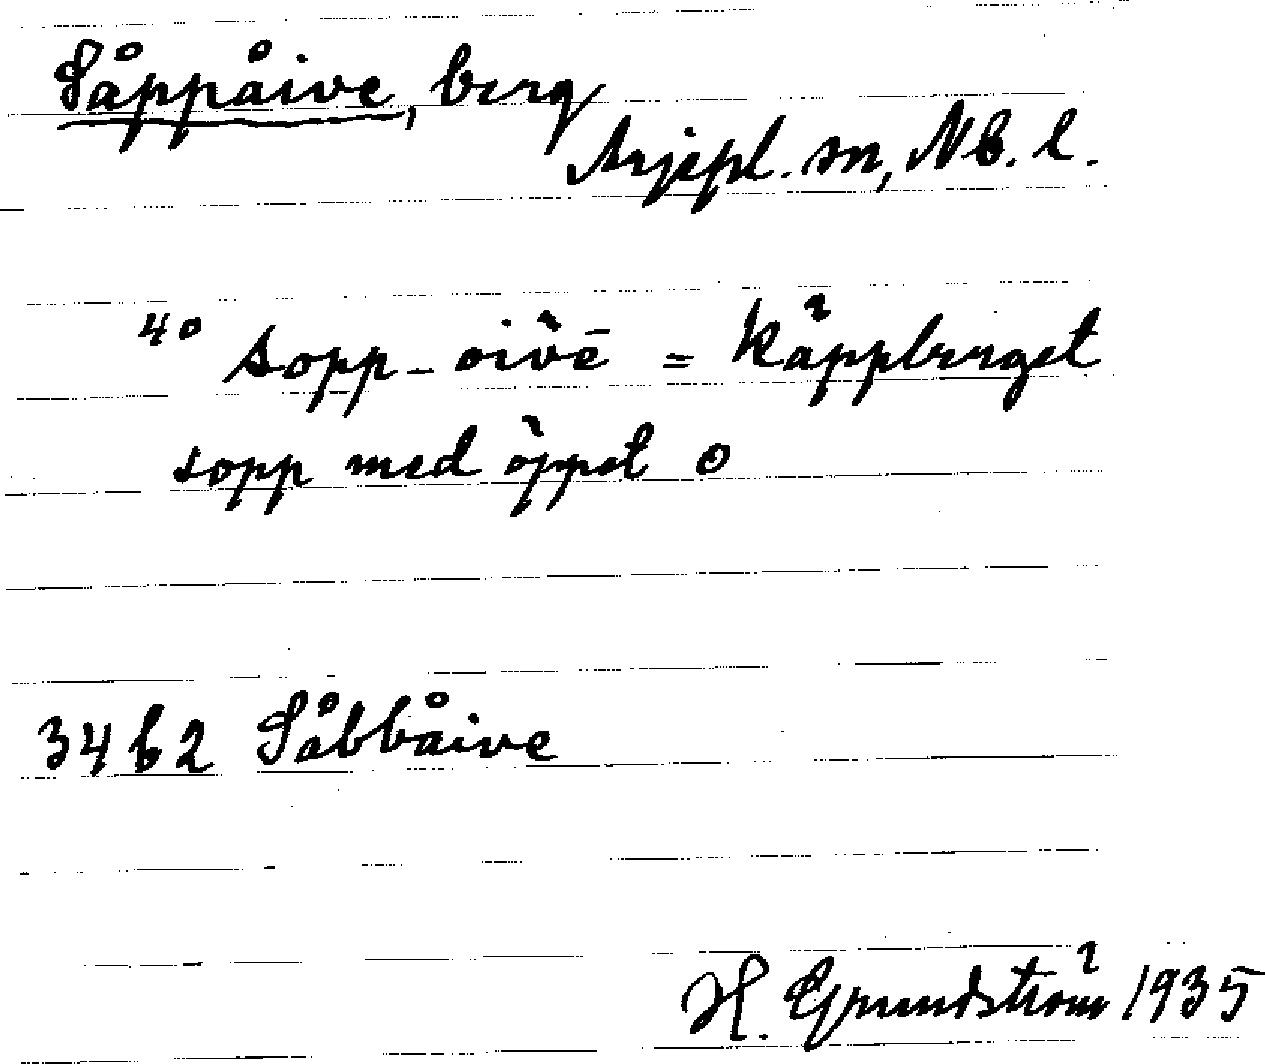 Såppåive, berg
Arjepl. sn, Nb. l.
40 sopp-oivē = käppberget
sopp med öppet o
3462 Såbbåive
H. Grundström 1935